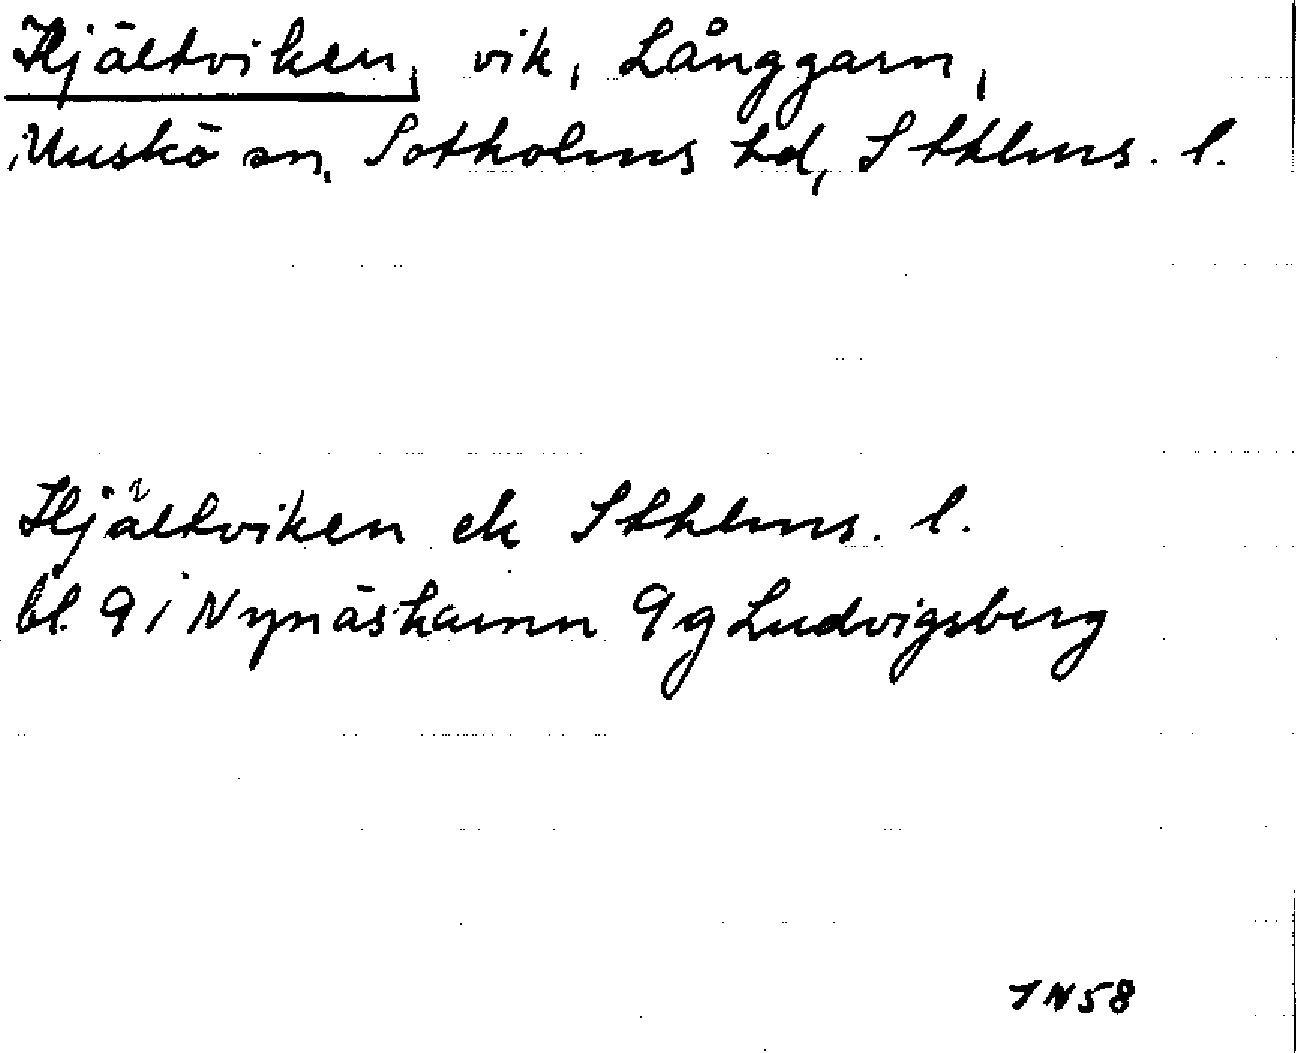 Hjältviken, vik, Långgarn,
Muskö sn, Sotholms hd, Sthlms. l.
Hjältviken ek Sthlms. l.
bl. 9 i Nynäshamn 9g Ludvigsberg
1 N 58